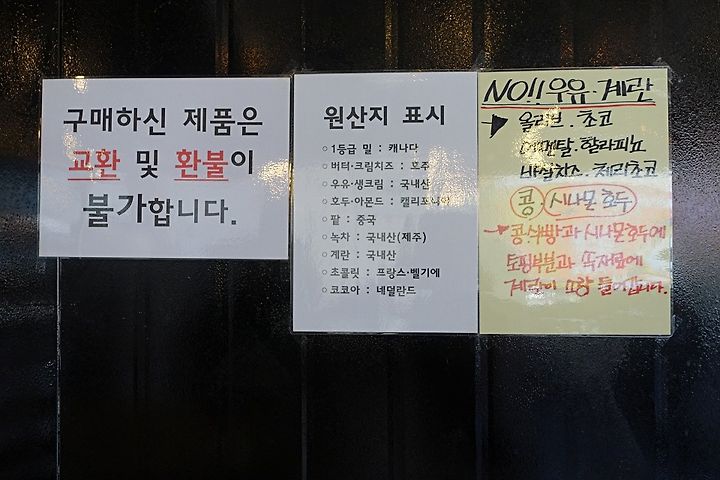 구매하신 제품은
교환 및 환불이
불가합니다.
원산지 표시
○1등급 밀 : 캐나다
○버터·크림치즈 : 호주
○우유·생크림 : 국내산
○호두·아몬드 : 캘리포니아
○팥 : 중국
○녹차 : 국내산(제주)
○계란 : 국내산
○초콜릿 : 프랑스·벨기에
○코코아 : 네덜란드
NO!! 우유·계란
올리브. 초코
에멘탈. 할라피뇨
바질치즈. 체리초코
콩. 시나몬호두
콩식빵과 시나몬호두에
토핑부분과 속재료에
계란이 들어갑니다.